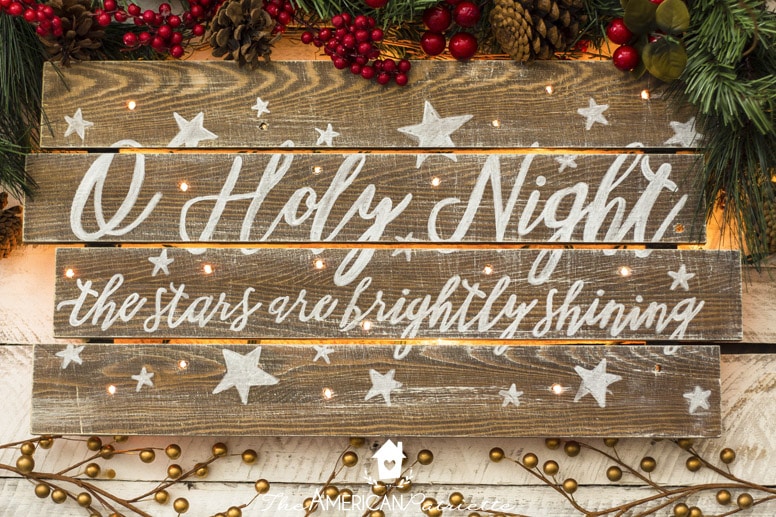 O Holy Night
the stars are brightly shining
The AMERICAN Patriette